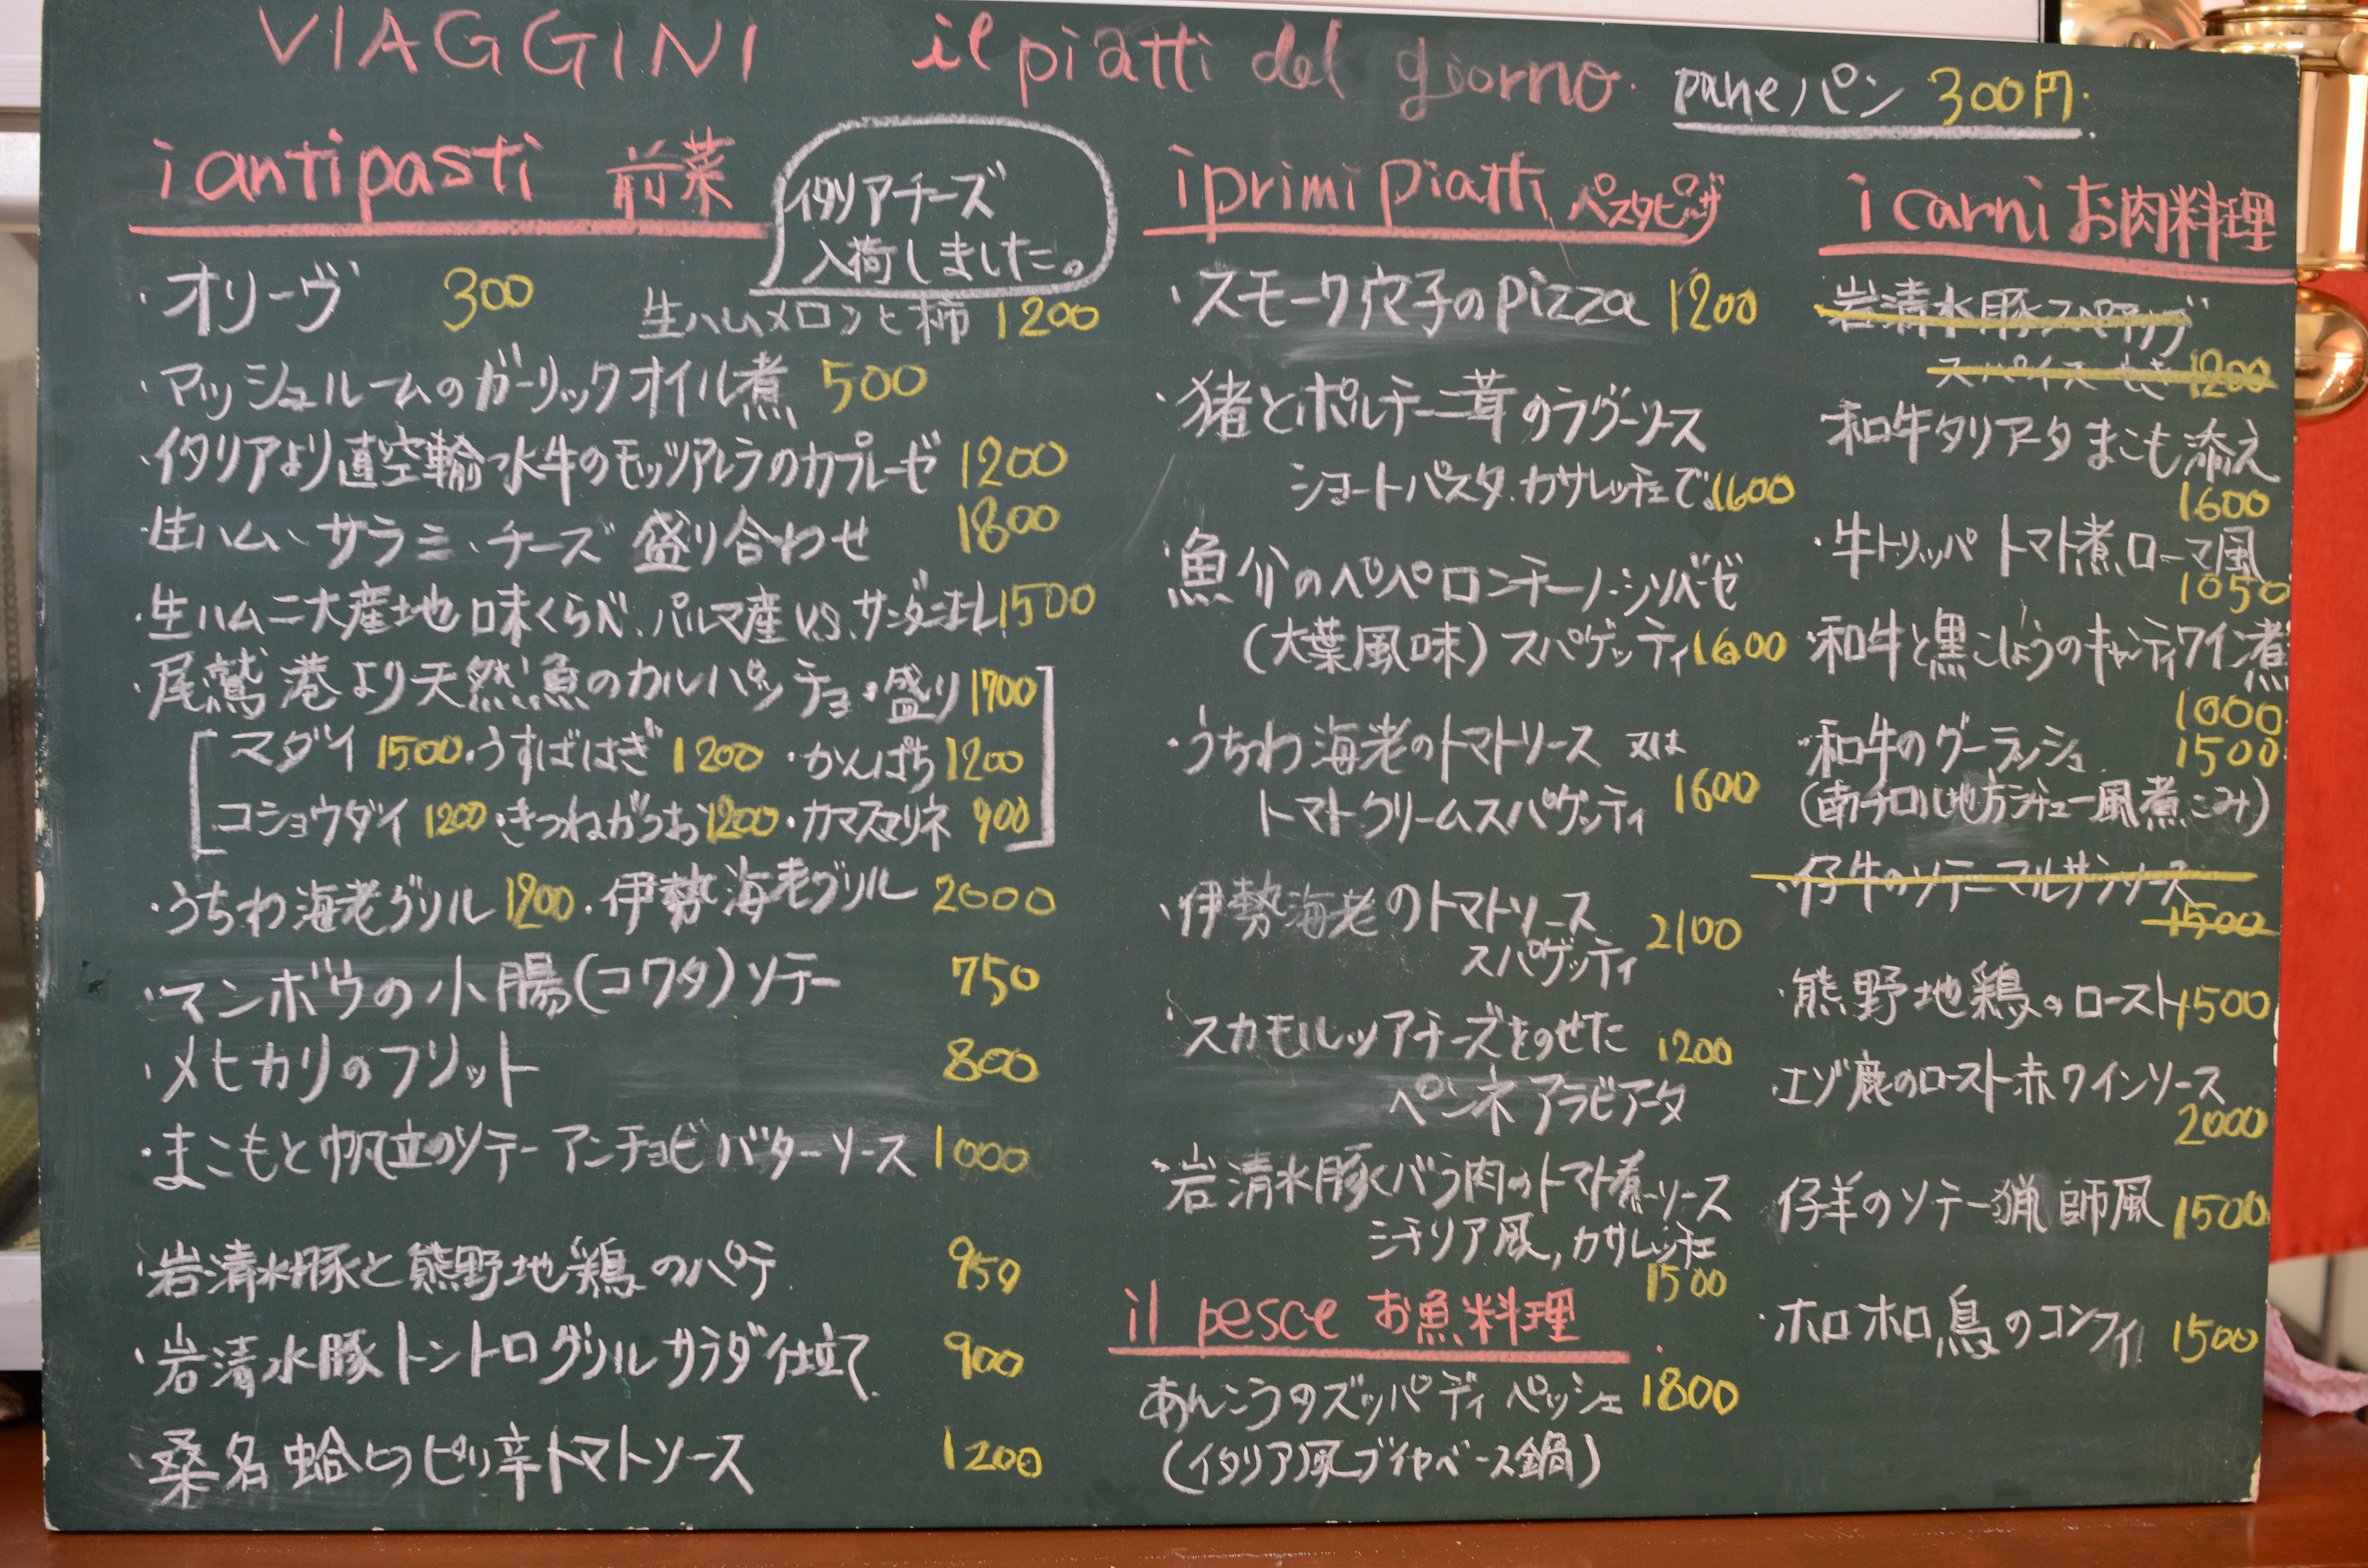 VIAGGINI il piatti del giorno.
pane パン 300円.
i antipasti 前菜
イタリアチーズ
入荷しました。
・オリーヴ 300
生ハムメロンと柿 1200
・マッシュルームのガーリックオイル煮 500
・イタリアより直空輸 水牛のモッツアレラのカプレーゼ 1200
・生ハム、サラミ、チーズ 盛り合わせ 1800
・生ハム二大産地 味くらべ、パルマ産 v.s.サンダニエレ 1500
・尾鷲港より天然魚のカルパッチョ・盛り 1700
マダイ 1500・うすばはぎ 1200・かんぱち 1200
コショウダイ 1200・きつねがつお 1200・カマスマリネ 900
・うちわ海老グリル 1200・伊勢海老グリル 2000
・マンボウの小腸(コワタ)ソテー 750
・メヒカリのフリット 800
・まこもと帆立のソテー アンチョビバターソース 1000
・岩清水豚と熊野地鶏のパテ 950
・岩清水豚トントログリル サラダ仕立て 900
・桑名蛤のピリ辛トマトソース 1200
i primi piatti パスタピッザ
・スモーク穴子のpizza 1200
・猪とポルチーニ茸のラグーソース
ショートパスタ.カサレッチェで.1600
・魚介のペペロンチーノ・ジェノベーゼ
(大葉風味) スパゲッティ 1600
・うちわ海老のトマトソース 又は
トマトクリームスパゲッティ 1600
・伊勢海老のトマトソース
スパゲッティ 2100
・スカモルツアチーズをのせた 1200
ペンネ アラビアータ
・岩清水豚バラ肉のトマト煮ソース
シチリア風,カサレッチェ
1500
il pesce お魚料理
あんこうのズッパ ディ ペッシェ 1800
(イタリア風ブイヤベース鍋)
i carni お肉料理
岩清水豚スペアリブ
スパイス焼き 1200
和牛タリアータ まこも添え
1600
・牛トリッパ トマト煮ローマ風
1050
・和牛と黒こしょうのキャンティワイン煮
1000
・和牛のグーラッシュ 1500
(南チロル地方シチュー風煮こみ)
・仔牛のソテーマルサラソース
1500
・熊野地鶏のロースト 1500
・エゾ鹿のロースト赤ワインソース
2000
仔羊のソテー猟師風 1500
・ホロホロ鳥のコンフィ 1500